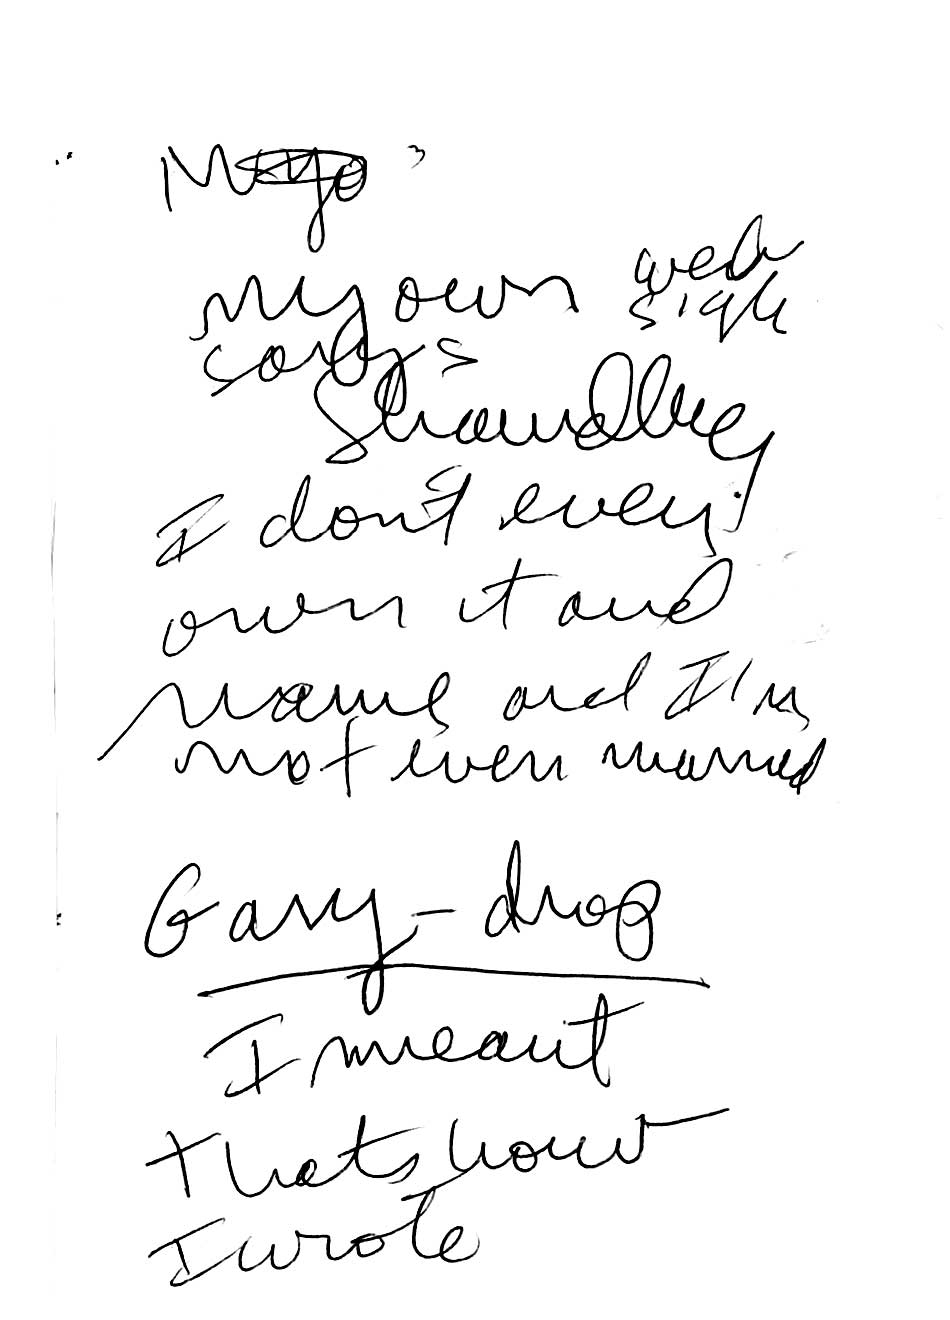 my own web
sight
says
I don't even
own it and
name and I'm
not even married
Gary - drop
I meant
thats how
I wrote